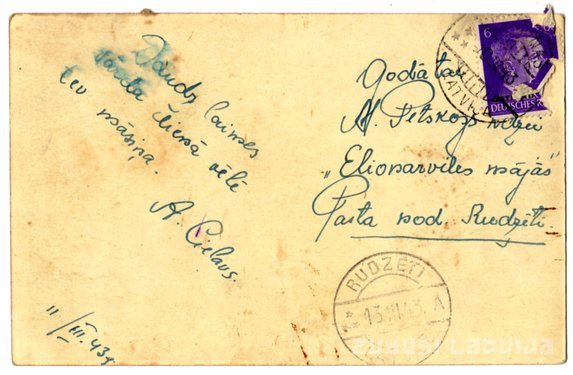 Daudz laimes
vārda dienā vēlē
tev māsiņa.
A. Cielavs.
11/III. 43 g
Godātai
"Elionarviles mājās"
Pasta nod. Rudzēti
6
DEUTSCHES
LATVIJA
RUDZĒTI
13 III 43 A